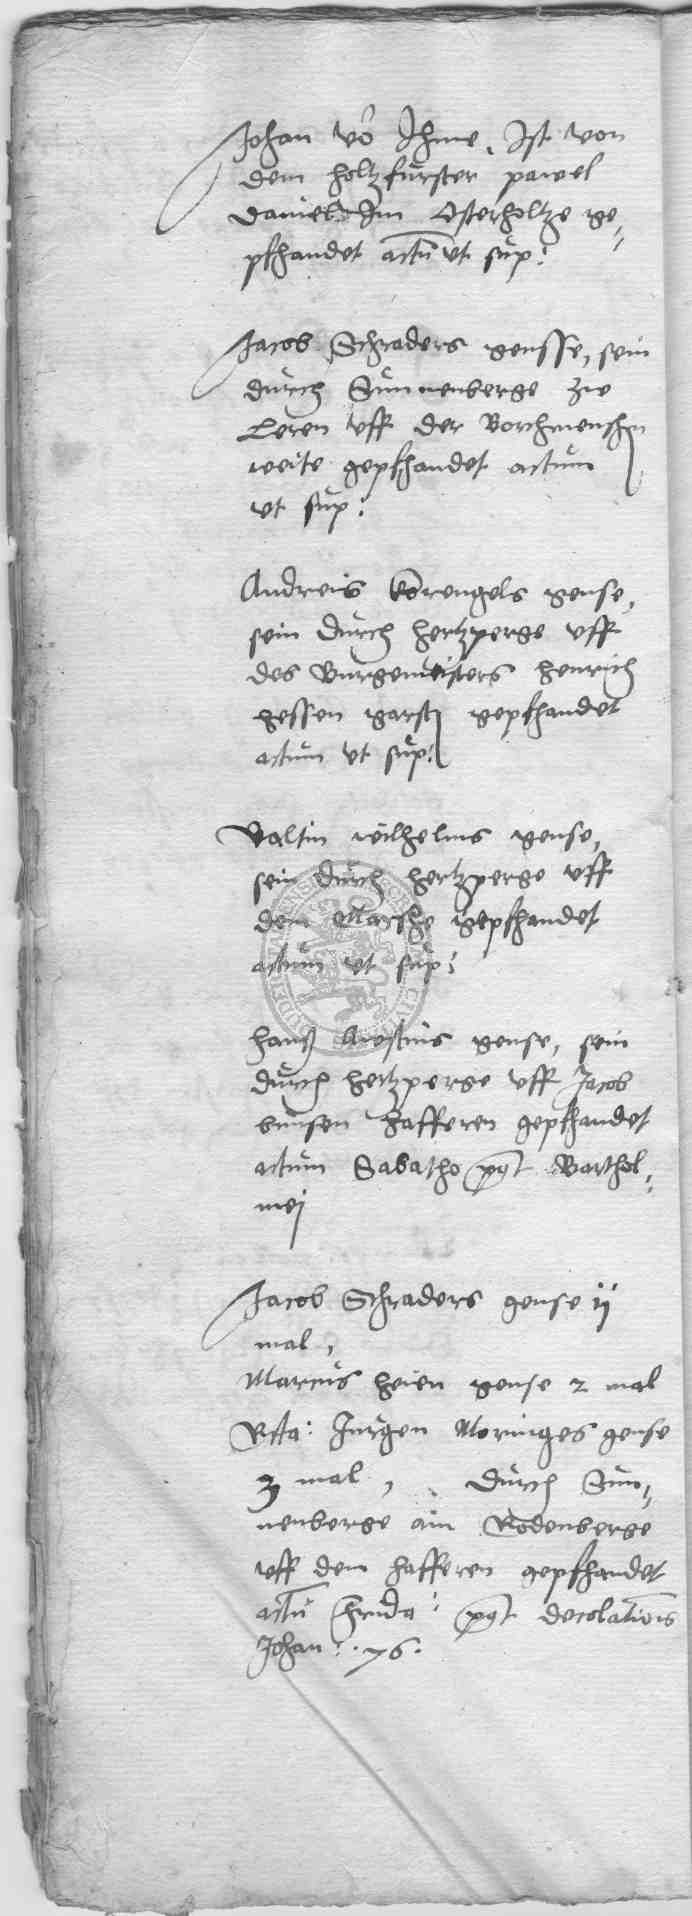 Johan vo Ihme, Ist von
dem holtzfurster pawel
Daniel Im Osterholtze ge-
pfhandet actu ut sup:
Jacob Schraders gensse, sein
durch Sunnenberge zue
Leren uff der Borchmenschen
weite gepfhandet actum
ut sup:
Andreis Korengels gense,
sein durch hertzperge uff
des Burgemeisters henrich
hessen garst gepfhandet
actum ut sup:
Valtin wilhelms gense,
sein durch hertzperge uff
dem Marsche gepfhandet
actum ut sup:
hans gense, sein
durch hertzperge uff Jacob
bunsen hafferen gepfhandet
actum Sabatho pgt Barthol-
mej
Jacob Schraders gense ij
mal,
Marcus heien gense 2 mal
Jurgen Moringes gense
3 mal, durch Sun-
nenberge am Rodenberge
uff dem hafferen gepfhandet
actu pgt decolations
Johan: 76.